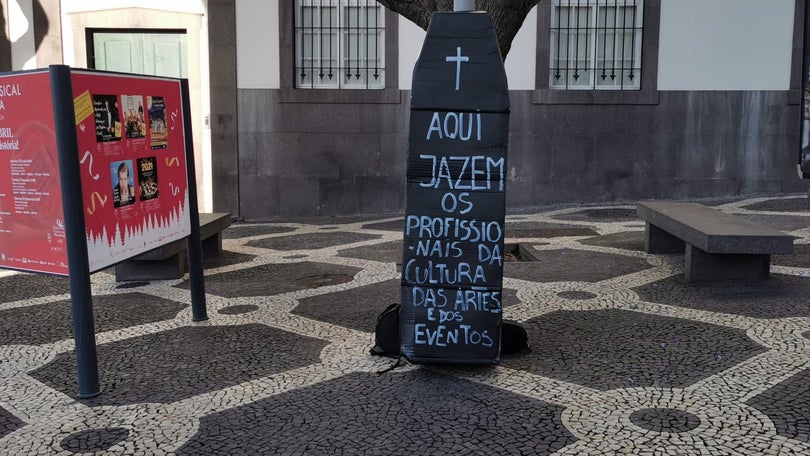 SICAL
BRIL
istória!
2021
AQUI
JAZEM
OS
PROFISSIO
-NAIS DA
CULTURA
DAS ARTES
E DOS
EVENTOS